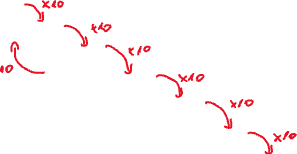 x10
x10
x10
10
x10
x10
x10